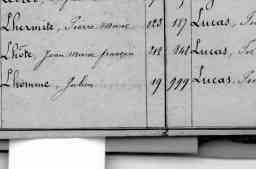 Lhermite, Pierre Marie 123 187 Lucas,
Lhôte, Jean Marie françois 212 361 Lucas,
Lhomme, Julien 19 999 Lucas,